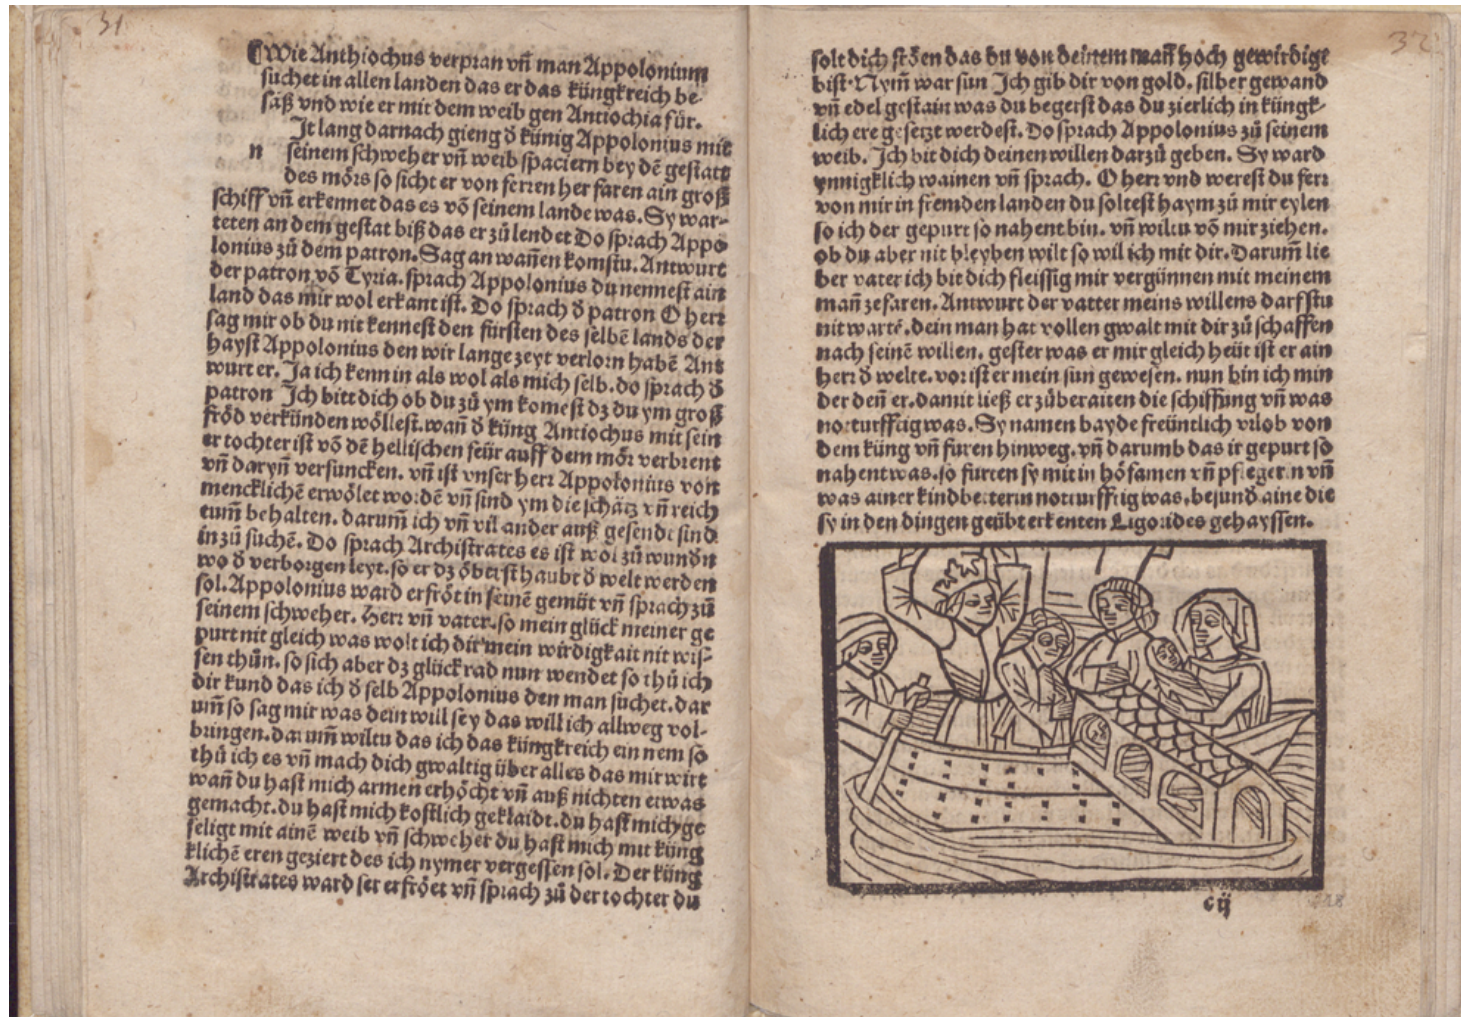 31
⸿Wie Anthiochus verpran vn̄ man Appolonium
suchet in allen landen das er das küngkreich be-
säß vnd wie er mit dem weib gen Antiochia für.
It lang darnach gieng d̄ künig Appolonius mit
n seinem schweher vn̄ weib spaciern bey dē gestatt
des mörs so sicht er von ferren her faren ain groß
schiff vn̄ erkennet das es vō seinem lande was. Sy war-
teten an dem gestat biß das er zů lendet Do sprach Appo
lonius zů dem patron. Sag an wan̄en komstu. Antwurt
der patron vō Tyria. sprach Appolonius du nennest ain
land das mir wol erkant ist. Do sprach d̄ patron O herr
sag mir ob du nit kennest den fürsten des selbē lands der
hayst Appolonius den wir lange zeyt verlorn habē Ant
wurt er. Ja ich kenn in als wol als mich selb. do sprach d̄
patron Ich bitt dich ob du zů ym komest dz du ym groß
fröd verkünden wöllest. wan̄ d̄ küng Antiochus mit sein
er tochter ist vō dē hellischen feür auff dem mör verbrent
vn̄ daryn̄ versuncken. vn̄ ist vnser herr Appolonius von
mencklichē erwölet wordē vn̄ sind ym die schätz vn̄ reich
tum̄ behalten. darum̄ ich vn̄ vil ander auß gesendt sind
in zů suchē. Do sprach Archistrates es ist wol zů wund̄n
wo d̄ verborgen leyt. so er dz öberst haubt d̄ welt werden
sol. Appolonius ward erfröt in seinē gemüt vn̄ sprach zů
seinem schweher. Herr vn̄ vater. so mein glück meiner ge
purt nit gleich was wolt ich dir mein wirdigkait nit wis-
sen thůn. so sich aber dz glückrad nun wendet so thů ich
dir kund das ich d̄ selb Appolonius den man suchet. dar
um̄ so sag mir was dein will sey das will ich allweg vol-
bringen. darum̄ wiltu das ich das küngkreich ein nem so
thů ich es vn̄ mach dich gwaltig über alles das mir wirt
wan̄ du hast mich armen erhöcht vn̄ auß nichten etwas
gemacht. du hast mich kostlich geklaidt. du hast mich ge
seligt mit ainē weib vn̄ schweher du hast mich mit küng
klichē eren geziert des ich nymer vergessen sol. Der küng
Archistrates ward ser erfröet vn̄ sprach zů der tochter du
32
solt dich frōen das du von deinem man̄ hoch gewirdige
bist. Nym̄ war sun Ich gib dir von gold. silber gewand
vn̄ edel gestain was du begerst das du zierlich in küngk-
lich ere gesetzt werdest. Do sprach Appolonius zů seinem
weib. Ich bit dich deinen willen darzů geben. Sy ward
ynnigklich wainen vn̄ sprach. O herr vnd werest du ferr
von mir in fremden landen du soltest haym zů mir eylen
so ich der gepurt so nahent bin. vn̄ wiltu vō mir ziehen.
ob du aber nit bleyben wilt so wil ich mit dir. Darum̄ lie
ber vater ich bit dich fleissig mir vergünnen mit meinem
man̄ ze faren. Antwurt der vatter meins willens darfstu
nit wartē. dein man hat vollen gwalt mit dir zů schaffen
nach seinē willen. gester was er mir gleich heüt ist er ain
herr d̄ welte. vor ist er mein sun gewesen. nun bin ich min
der den̄ er. damit ließ er zůberaiten die schiffung vn̄ was
notturfftig was. Sy namen bayde freüntlich vrlob von
dem küng vn̄ furen hinweg. vn̄ darumb das ir gepurt so
nahent was. so fürten sy mit in hösamen vn̄ pflegern vn̄
was ainer kindbetterin notturfftig was. besund̄ aine die
sy in den dingen geübt erkenten Ligorides gehayssen.
c ij